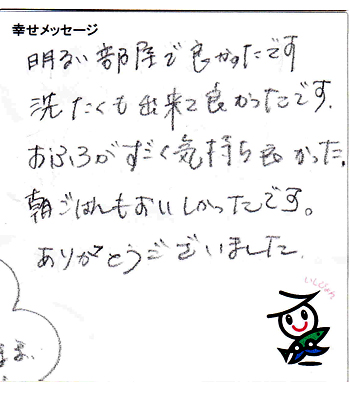 幸せメッセージ
明るい部屋で良かったです
洗たくも出来て良かったです.
おふろがすごく気持ち良かった.
朝ごはんもおいしかったです。
ありがとうございました.